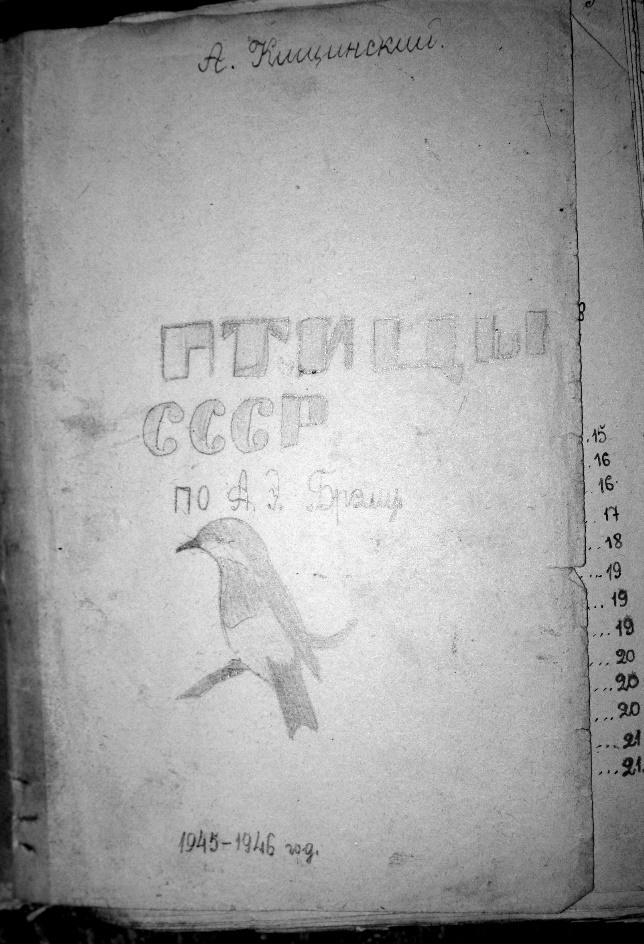 А. Клицинский.
ПТИЦЫ
СССР
по А. Э. Брэму
1945-1946 год.
3
. 15
. 16
16
17
.. 18
... 19
... 19
... 19
... 20
... 20
... 20
... 21
... 21.